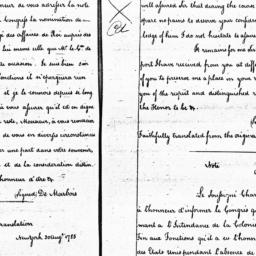 neur de vous adresser la note
Congrès la nomination de
gé des affaires du Roi auprès des
lui même telle que Mr. le Cte. de
occasion. Je suis bien sûr
fonctions il n'épargnera rien
et je le connois depuis si long
à vous assurer qu'il est en digne
te note, Monsieur, à vous remercier
de vous en diverses circonstances
une part dans votre souvenir,
et de la considération distin
honneur d'être &
Signed De Marbois
Translation
New york 30 Augt. 1785
well assured that during the course
spare no pains to deserve your confidence
ledge of him I do not hesitate to assure
It remains for me
port I have received from you at diff
of you to preserve me a place in your
of the respect and distinguished
the Honor to be &
Faithfully translated from the original
Note
Le Soussigné Chargé
à l'honneur d'informer le Congrès que
mant à l'Intendance de la Colonie
Fin aux Fonctions qu'il a eu l'honneur
des Etats représentant l'absence de